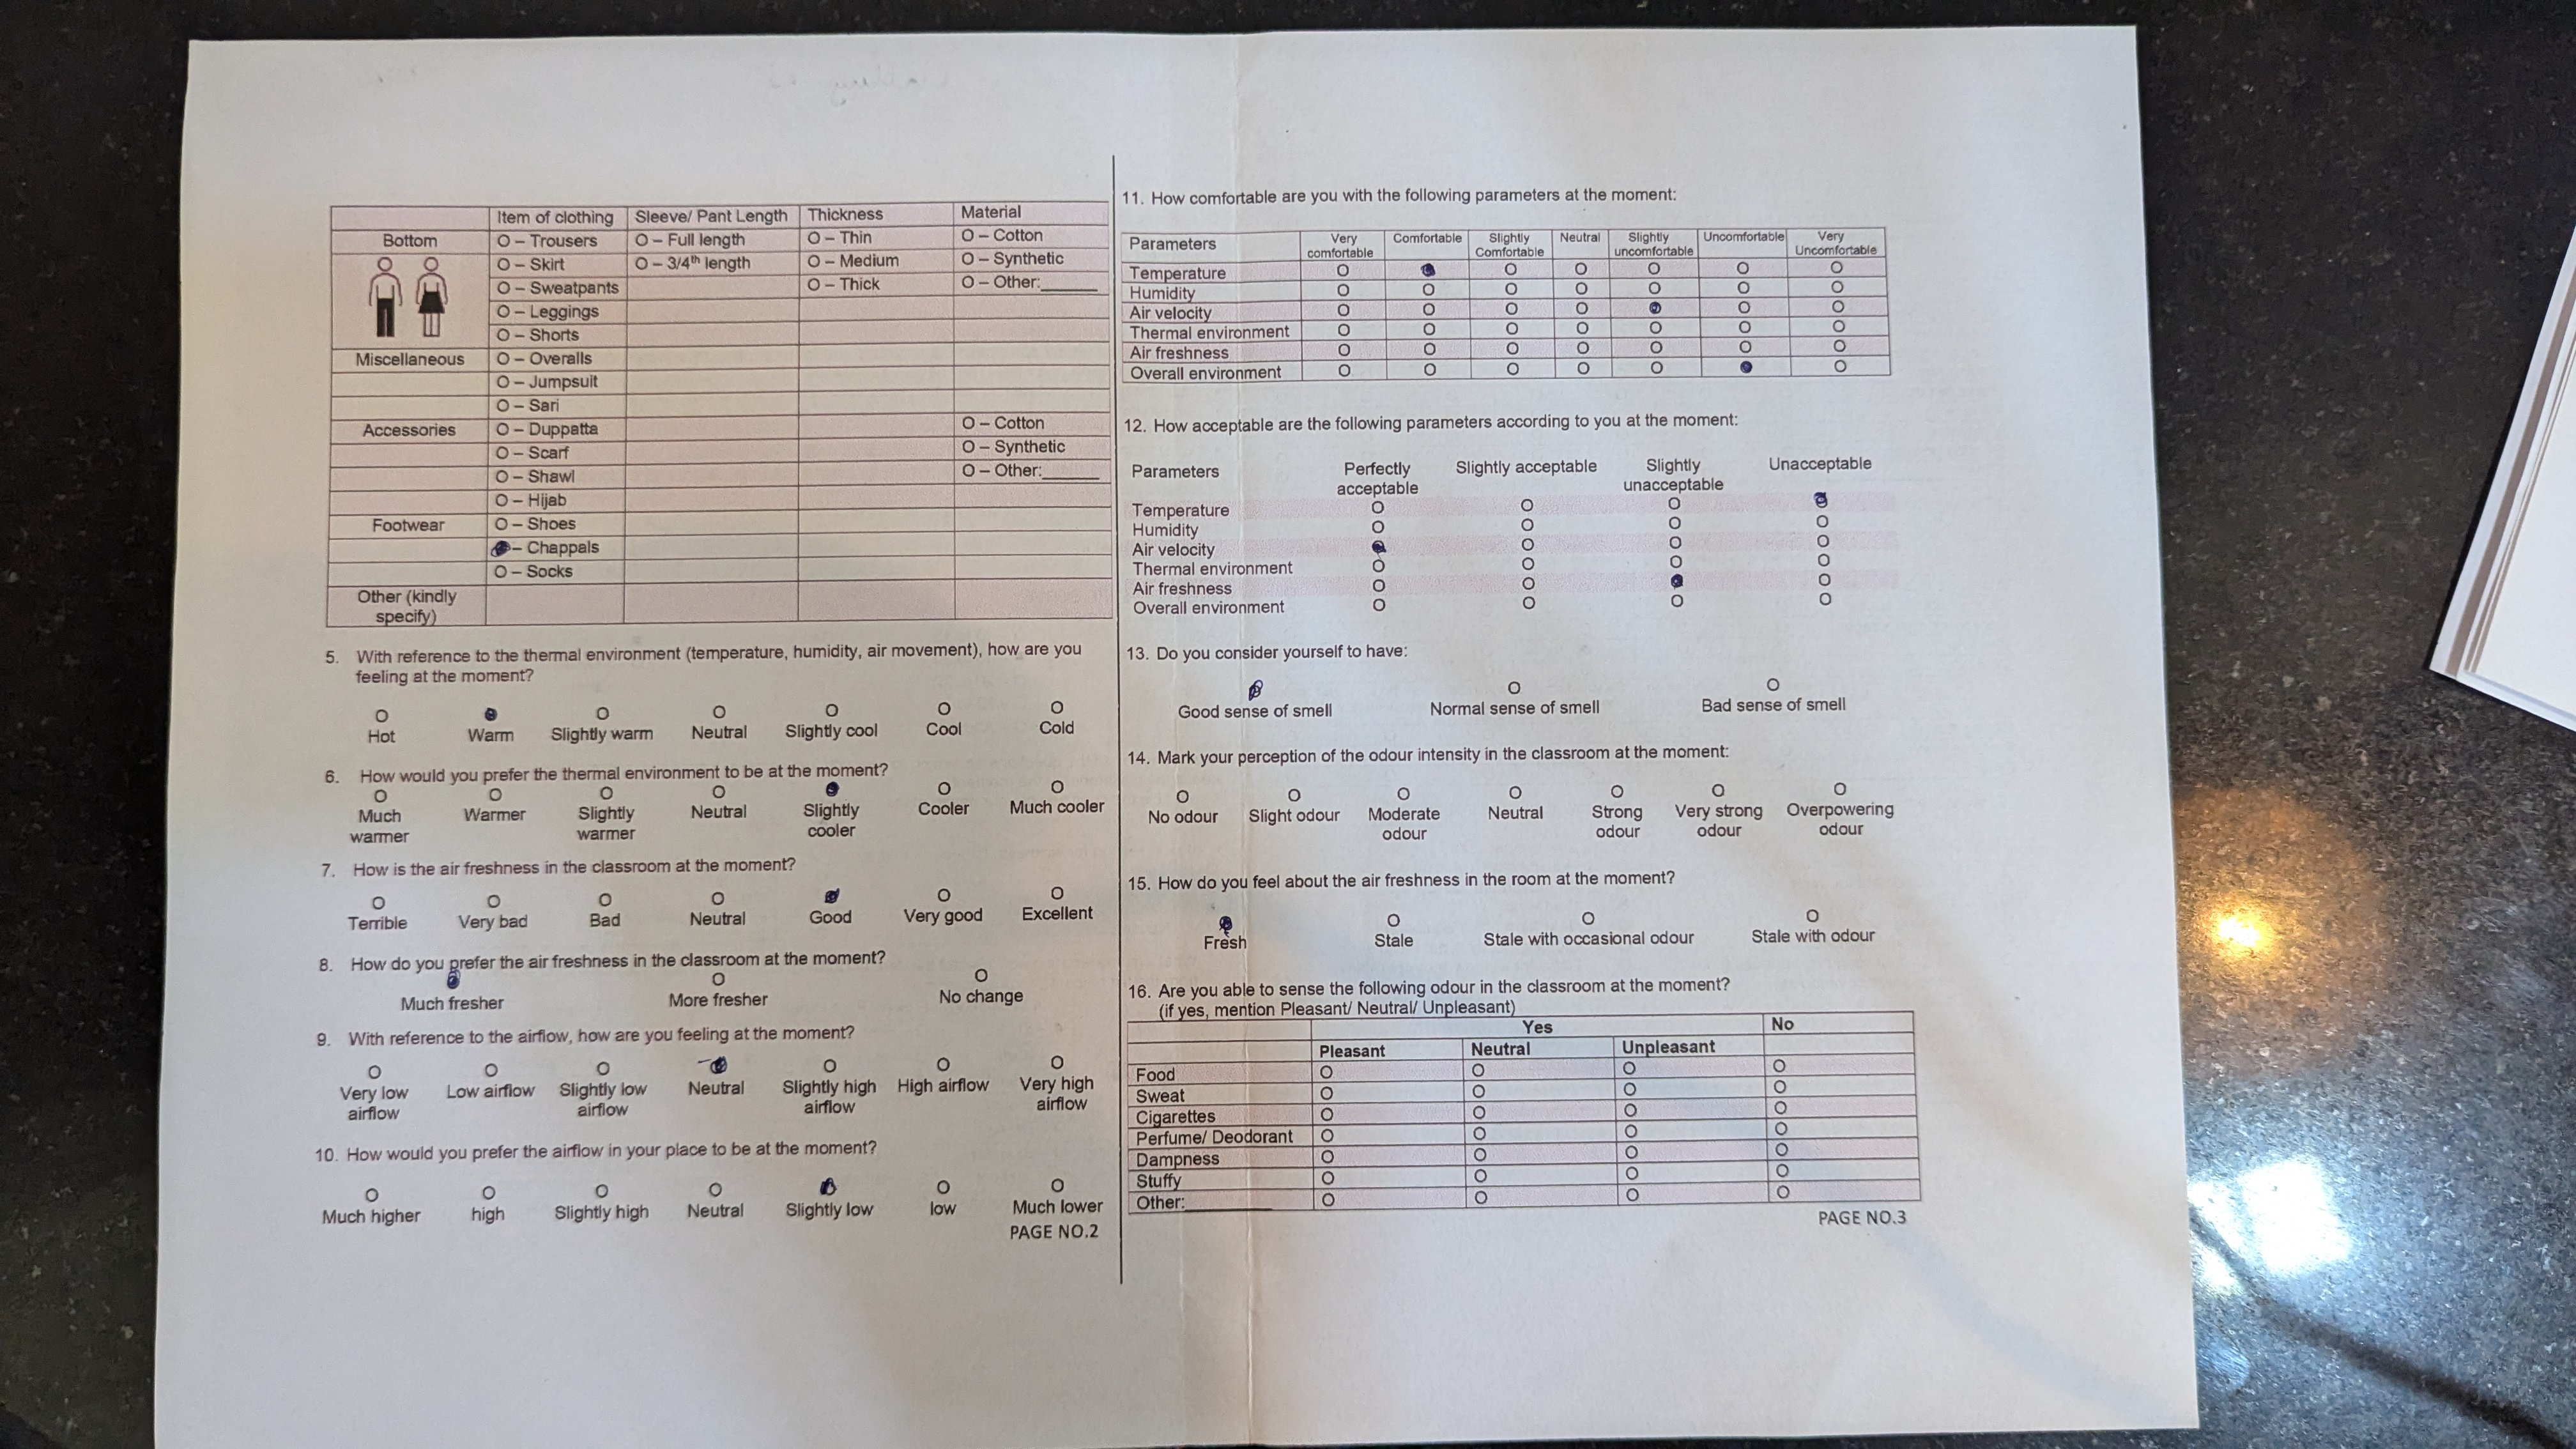 Item of clothing Sleeve/ Pant Length Thickness Material
Bottom O – Trousers O – Full length O – Thin O – Cotton
O – Skirt O – 3/4th length O – Medium O – Synthetic
O – Sweatpants O – Thick O – Other:______
O – Leggings
O – Shorts
Miscellaneous O – Overalls
O – Jumpsuit
O – Sari
Accessories O – Duppatta O – Cotton
O – Scarf O – Synthetic
O – Shawl O – Other:______
O – Hijab
Footwear O – Shoes
– Chappals
O – Socks
Other (kindly
specify)
5. With reference to the thermal environment (temperature, humidity, air movement), how are you
feeling at the moment?
Hot Warm Slightly warm Neutral Slightly cool Cool Cold
6. How would you prefer the thermal environment to be at the moment?
Much Warmer Slightly Neutral Slightly Cooler Much cooler
warmer warmer cooler
7. How is the air freshness in the classroom at the moment?
Terrible Very bad Bad Neutral Good Very good Excellent
8. How do you prefer the air freshness in the classroom at the moment?
Much fresher More fresher No change
9. With reference to the airflow, how are you feeling at the moment?
Very low Low airflow Slightly low Neutral Slightly high High airflow Very high
airflow airflow airflow airflow
10. How would you prefer the airflow in your place to be at the moment?
Much higher high Slightly high Neutral Slightly low low Much lower
PAGE NO.2
11. How comfortable are you with the following parameters at the moment:
Parameters Very Comfortable Slightly Neutral Slightly Uncomfortable Very
comfortable Comfortable uncomfortable Uncomfortable
Temperature
Humidity
Air velocity
Thermal environment
Air freshness
Overall environment
12. How acceptable are the following parameters according to you at the moment:
Parameters Perfectly Slightly acceptable Slightly Unacceptable
acceptable unacceptable
Temperature
Humidity
Air velocity
Thermal environment
Air freshness
Overall environment
13. Do you consider yourself to have:
Good sense of smell Normal sense of smell Bad sense of smell
14. Mark your perception of the odour intensity in the classroom at the moment:
No odour Slight odour Moderate Neutral Strong Very strong Overpowering
odour odour odour odour
15. How do you feel about the air freshness in the room at the moment?
Fresh Stale Stale with occasional odour Stale with odour
16. Are you able to sense the following odour in the classroom at the moment?
(if yes, mention Pleasant/ Neutral/ Unpleasant)
Yes No
Pleasant Neutral Unpleasant
Food
Sweat
Cigarettes
Perfume/ Deodorant
Dampness
Stuffy
Other:________
PAGE NO.3